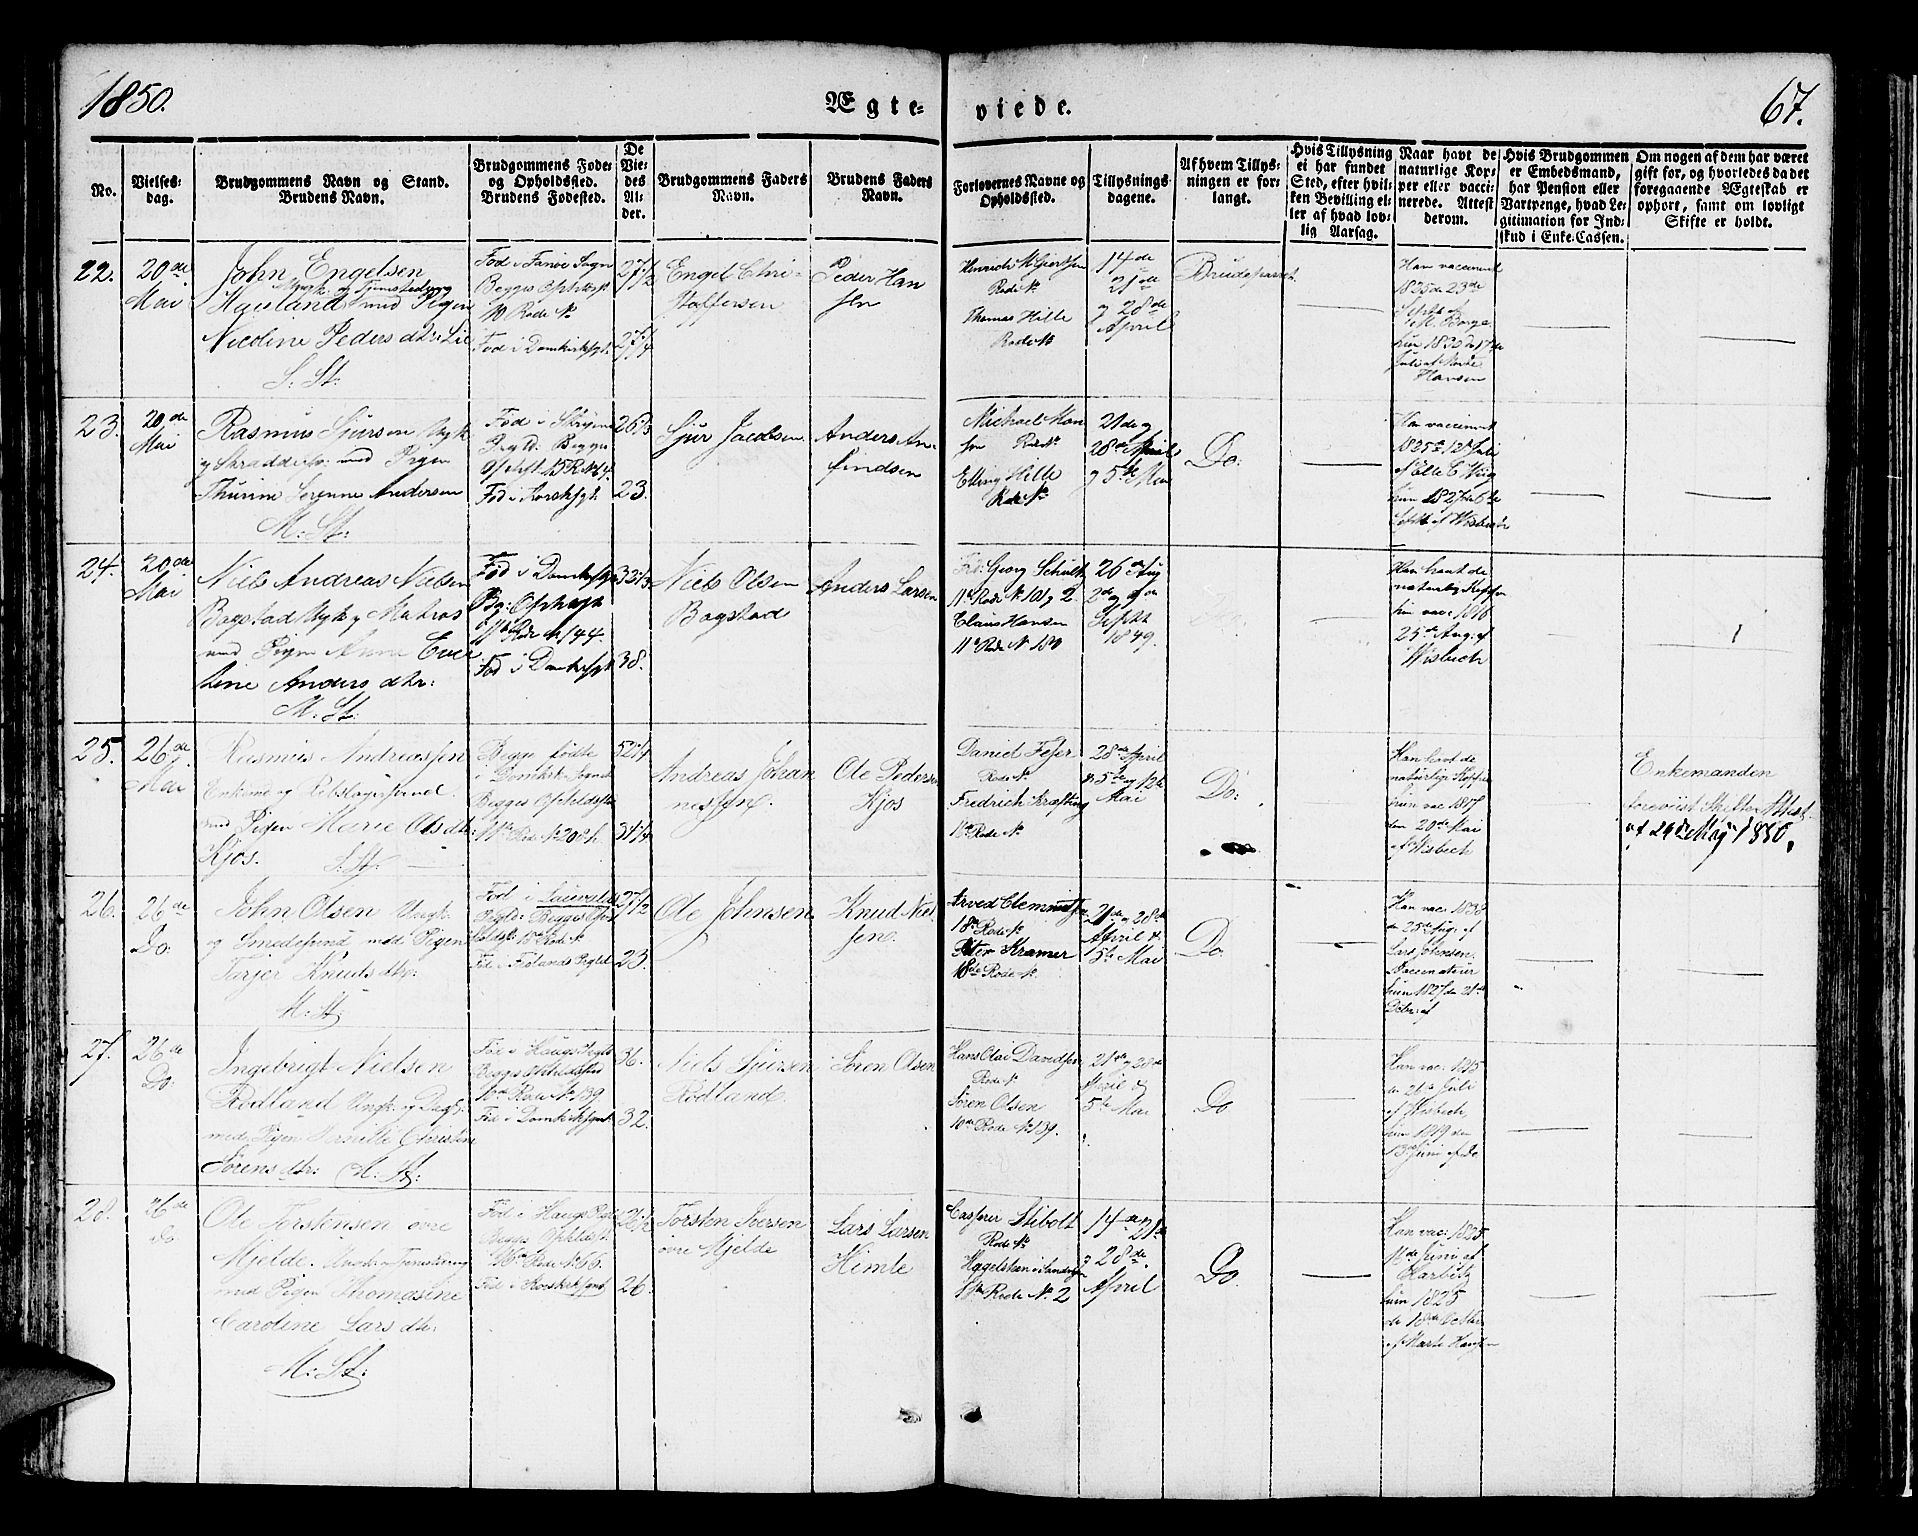 1850.
Ægte-
viede.
67.
No.
Vielses-
dag.
Brudgommens Navn og Stand.
Brudens Navn.
Brudgommens Føde-
og Opholdssted.
Brudens Fødested.
De
Vie-
des
Al-
der.
Brudgommens Faders
Navn.
Brudens Faders
Navn.
Forlovernes Navne og
Opholdssted.
Tillysnings-
dagene.
Af hvem Tillys-
ningen er for-
langt.
Hvis Tillysning
ei har fundet
Sted, efter hvil-
ken Bevilling el-
ler af hvad lov-
lig Aarsag.
Naar havt de
naturlige Kop-
per eller vacci-
nerede. Attest
derom.
Hvis Brudgommen
er Embedsmand,
har Pension eller
Vartpenge, hvad Le-
gitimation for Ind-
skud i Enke-Cassen.
Om nogen af dem har været
gift før, og hvorledes da det
foregaaende Ægteskab er
ophørt, samt om lovligt
Skifte er holdt.
22.
20de
Mai
John Engelsen
Haveland med Pigen
Nicoline Peders dtr: Lie
S. St:
Fød i Fanøe Sogn
Begges Opholdst
10 Rode No
Fød i Domkirksgt.
27 1/2
27 1/4
Engel Chri-
stoffersen
Peder Han
sen
Rode No
Thomas Hille
Rode No
14de
21de
og 28de
April
Brudeparret
Han vaccineret
1825 de 23de
Septb af
M. Borge
Juli af Marte
Hansen
23.
20de
Mai
Rasmus Sjursen Ungk
og Skrædder med Pigen
Thurine Serenne Andersen
M: St:
Begges
Fød i Korsk sgt.
26 1/3
23.
Sjur Jacobsen
Anders An-
findsen
Michael Han
sen Rode No
Elling Hille
Rode No
21de og
28de April
og 5te Mai
Do:
Han vaccineret
1825 12 Juli
hun 1827 de 6te
Septb af Wisbech
24.
20de
Mai
Niels Andreas Nielsen
Bogstad Ungk og Matros
med Pigen Anne Ever
tine Anders dtr:
M. St:
Fød i Domkirksgt
Bg: Opholdst
11te Rode No 144.
Fød i Domkirksgt
32 1/3
38.
Niels Olsen
Bogstad
Anders Larsen
Georg Schultz
11te Rode No 101 og 2
Claus Hansen
11te Rode No 180
26 Aug
2de og 9de
Septb
1849.
Han havt de
naturlig Kopper
hun vac: 1816
25de Aug. af
Wisbech
25.
26de
Mai
Rasmus Andreassen
Enkemd og Rebslagersvend
med Pigen Marie Ols dtr:
Kjos. S: St:
Begge fødte
i Domksk Sogn
Begges Opholdsst
11te Rode No 208 b.
52 1/4
31 1/4
Andreas Johan
nessen.
Ole Pedersen
Kjos
Daniel Fejer
Rode No
Fredrich Kræfting
11te Rode No
28de April
& 5te og 12te
Mai
Do:
Han havt de
naturlige Kopper
hun vac 1817
den 20de Mai
af Wisbech
Enkemanden
foreviist Skifte Attest
af 24de Maj 1850.
26.
26de
Do.
John Olsen Ungk:
og Smedesvend med Pigen
Torjer Knuds dtr:
M: St:
Fød i
Prgld: Begges Op
holdst: 18 Rode No
27 1/2
23.
Ole Johnsen
Knud Niel
sen.
Arved Clemmetsen
18de Rode No
Peter Kramer
18de Rode No
21de og 28de
April &
5te Mai
Do.
Han vac: 1838
de 25de Aug: af
Lars Johnsen
Vaccinateur
hun 1827 den 21de
Octbr: af
27.
26de
Do.
Ingebrigt Nielsen
Rødland Ungk: og Dagk:
med Pigen Pernille Christine
Sørens dtr: M: St:
Fød i Haugs Prgld
Begges Opholdssted
10de Rode No 139.
Fød i Domkirksognet
36.
32.
Niels Sjursen
Rødland.
Søren Olsen
Hans Olai Davidsen
Rode No
Søren Olsen
10de Rode No 139.
21de og 28de
April &
5te Mai
Do
Han vac: 1815
de 21de Juli
af Wisbech,
hun 1819 den
13de Juni af Do
28.
26de
Do.
Ole Torstensen øvre
Mjelde. Ungk:
med Pigen Thomasine
Caroline Lars dtr:
M: St:
Fød i Haugs Prgld
Begges Opholdst
16de Rode No 66.
Fød i Korskirksognet
26 1/2
26.
Torsten Iversen
øvre Mjelde
Lars Larsen
Himle
Casper Stibolt
Rode No
18de Rode No 2
14de og 21de
og 28de
April
Do
Han vac: 1825
11de Juni af
Harbitz
hun 1825
de 18de Octbr
af Marte Hansen